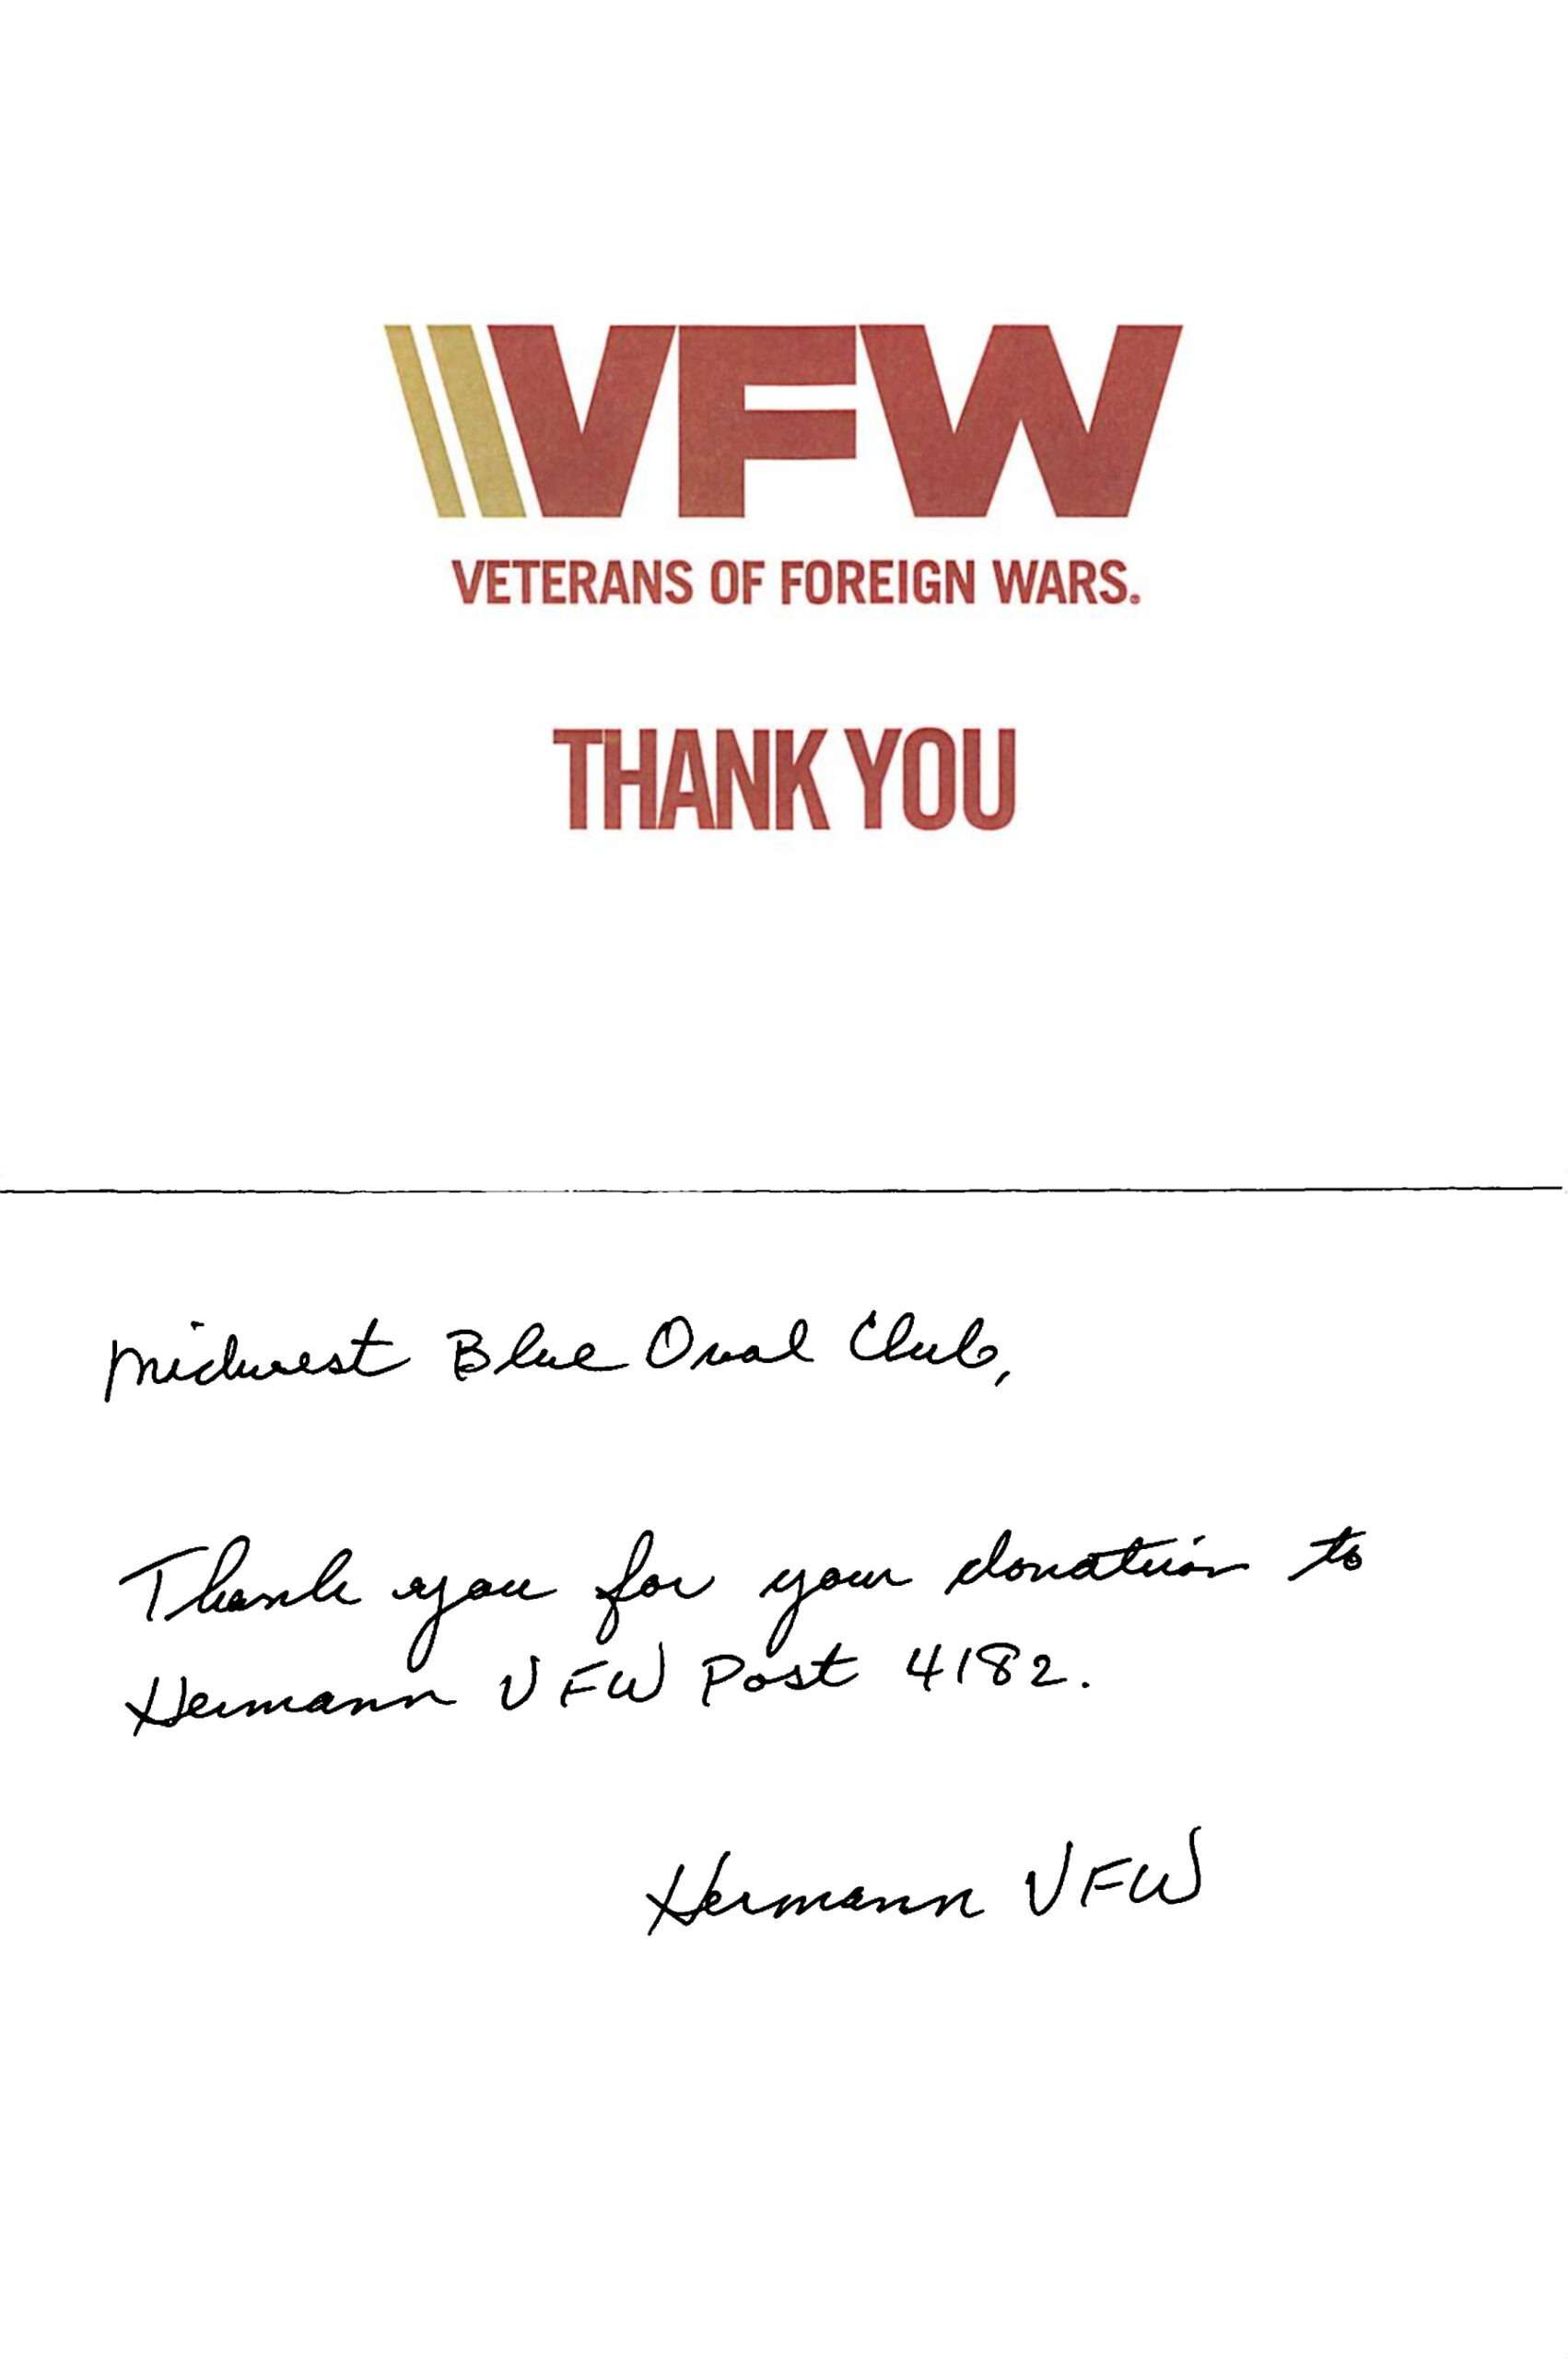 VFW
VETERANS OF FOREIGN WARS®
THANK YOU
Midwest Blue Oval Club,
Thank you for your donation to
Hermann VFW Post 4182.
Hermann VFW